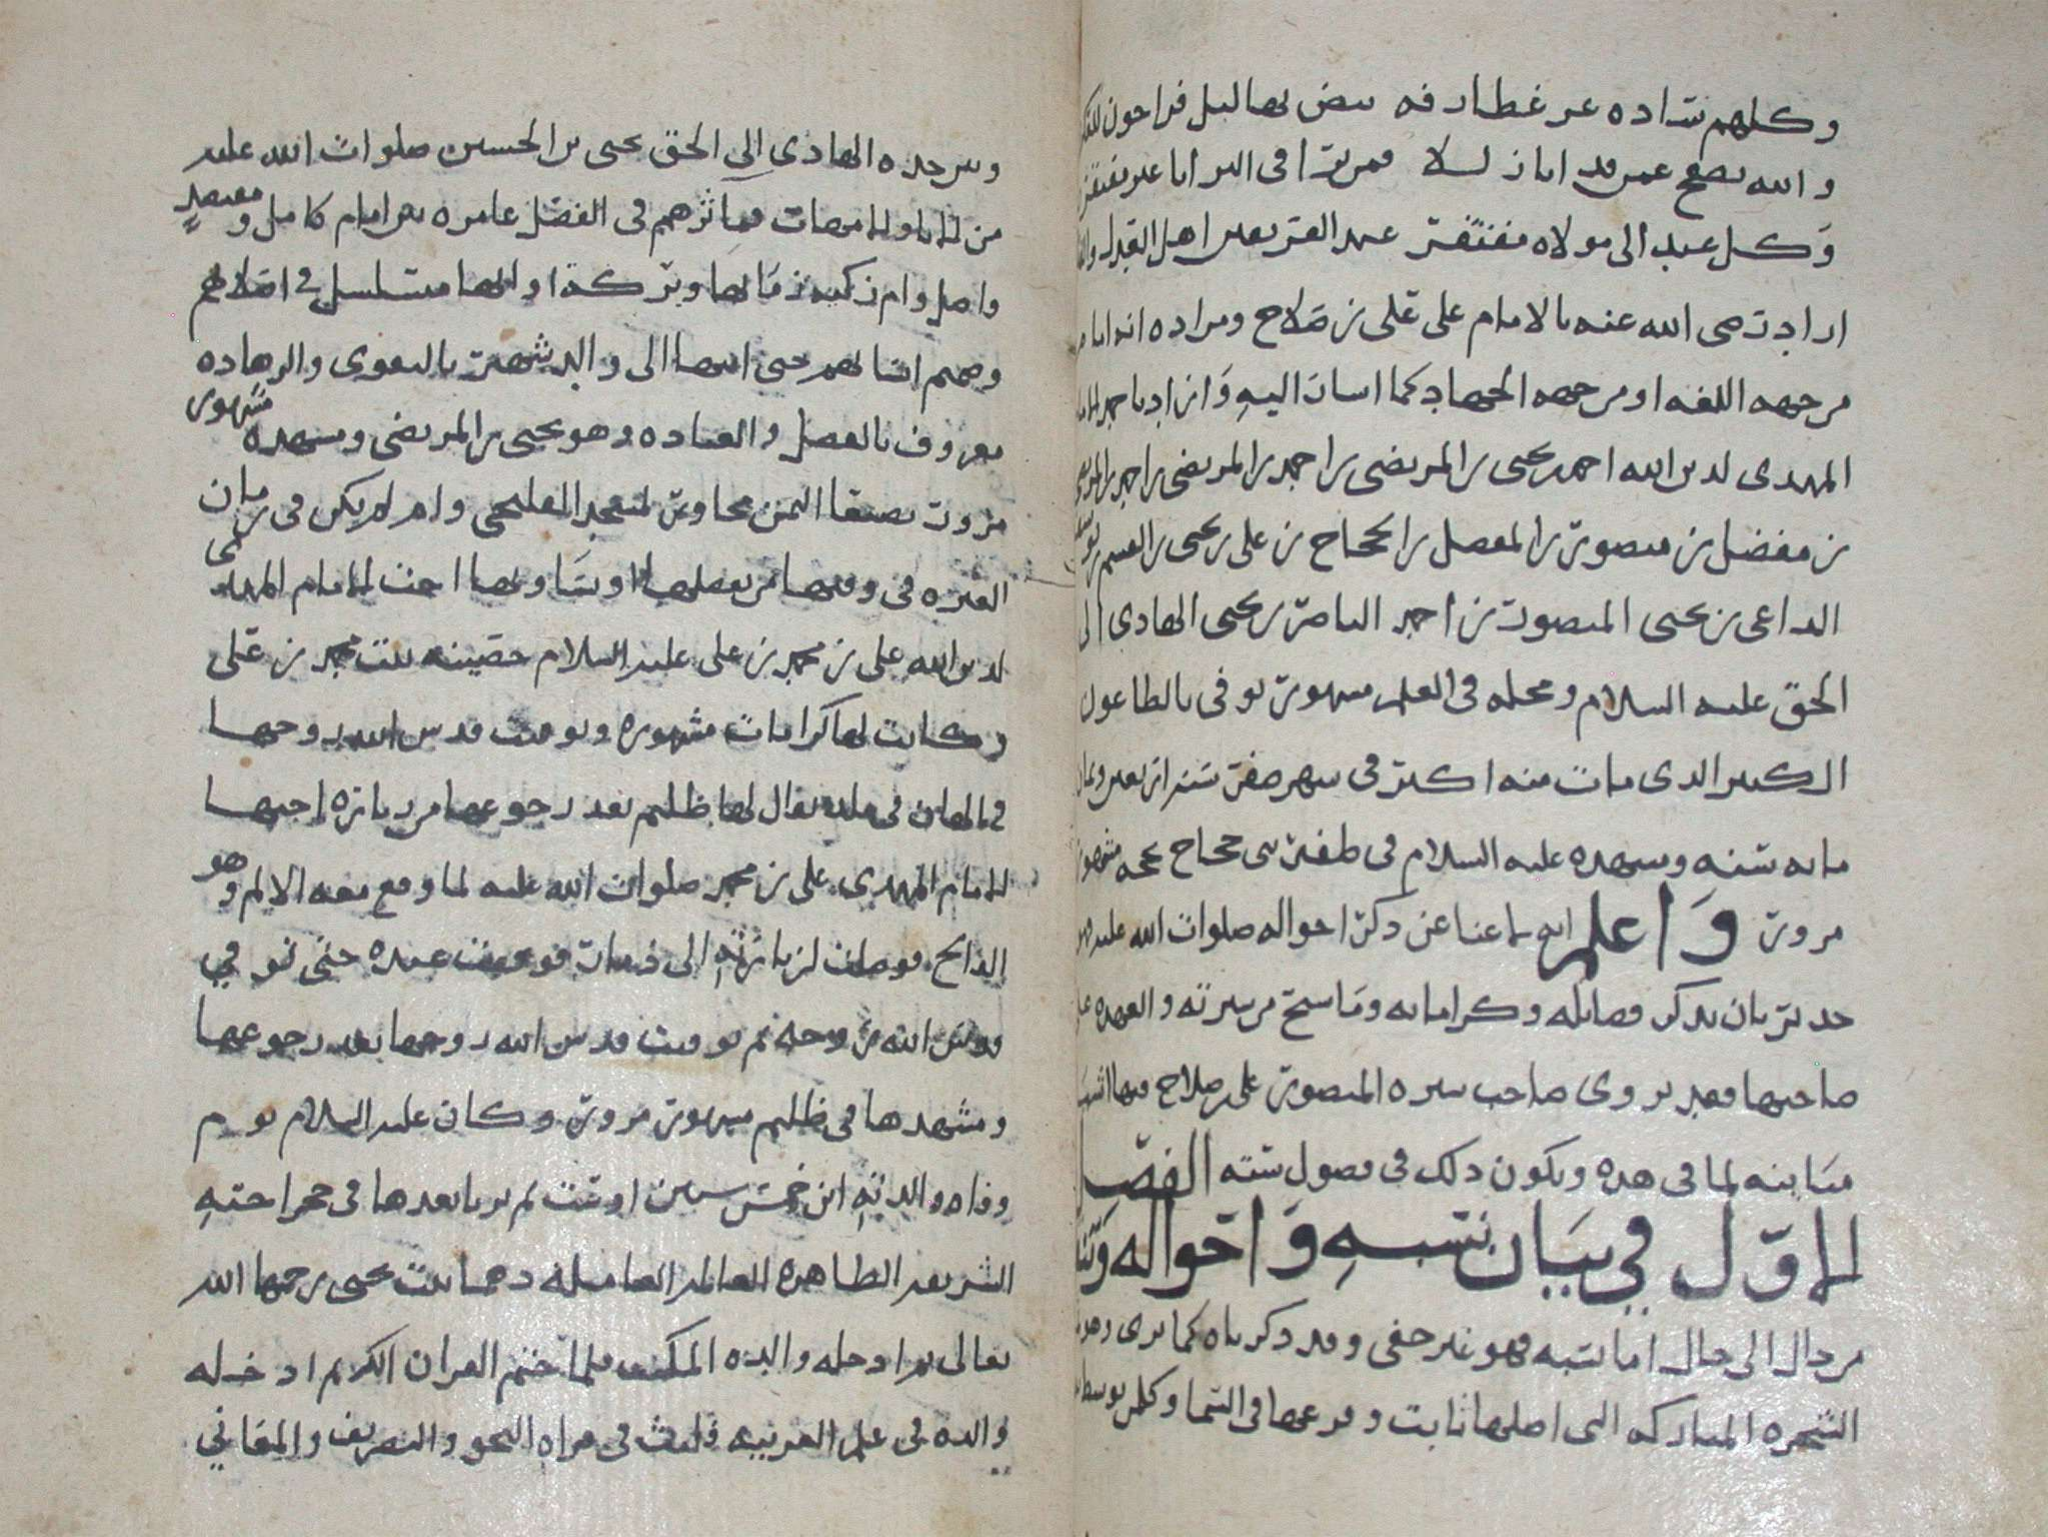 وكلهم ساده عر غطارفه بيض بهاليل فراجون
والله يصفح عمن قد ابان لسلا فمن ترا في البرايا غير مفتقر
وكل عبد الى مولاه مفتقر عبد العزيز اهل القبله
اراد رضى الله عنه بالامام على على بن صلاح ومراده انه امام
من جهه اللغه او من جهه الجهاد كما اشار اليه وان اراد باحمد الامام
المهدى لدين الله احمد بن يحيى بن المرتضى بن احمد بن المرتضى بن احمد بن المرتضى
بن مفضل بن منصور بن المفضل بن الحجاج بن على بن يحيى بن القسم بن يوسف
الداعى بن يحيى المنصور بن احمد الناصر بن يحيى الهادى الى
الحق عليه السلام ومحله فى العلم مشهور توفى بالطاعون
الكبير الذى مات منه اكثر فى شهر صفر سنه اربعين وثمان
مايه سنه ومشهده عليه السلام فى ظفير بنى حجاج حجه مشهور
مزور واعلم انه لما عنا عن ذكر احواله صلوات الله عليه
حد تربان يذكر فضائله وكراماته وما سنح من سيرته والعهده على
صاحبها فقد يروى صاحب سيره المنصور على بن صلاح فيها اشياء
مباينه لما فى هذه ويكون ذلك فى فصول سته الفصل
الاول في بيان نسبه واحواله
من حال الى حال اما نسبه فهو غير خفى وقد ذكرناه كما ترى
الشجره المباركه التى اصلها ثابت وفرعها فى السما
وبين جده الهادى الى الحق يحيى بن الحسين صلوات الله عليه
من الابا والامهات فمآثرهم فى الفضل عامره بين امام كامل ومقتصد
واصل وام زكيه زمانها وبركة اوانها متسلسل في اصلابهم
وصميم انسابهم حتى انتها الى والد شهير بالتقوى والزهاده
معروف بالفضل والعباده وهو يحيى بن المرتضى ومشهده مشهور
مزور بصنعا اليمن مجاور لمسجد الفليحي وام لم يكن فى زمان
الفتره فى وقتها من يفضلها او يساويها اخت الامام المهدى
لدين الله على بن محمد بن على عليه السلام حصينه بنت محمد بن على
وكانت لها كرامات مشهوره وتوفيت قدس الله روحها
في بالهان فى بلد يقال لها ظليم بعد رجوعها من زيارة اخيها
الامام المهدى على بن محمد صلوات الله عليه لما وقع معه الالم وهو
الفالج فوصلت لزيارته الى ذمار فوقفت عنده حتى توفي
وقدس الله روحه ثم توفيت قدس الله روحها بعد رجوعها
ومشهدها فى ظليم مشهور مزور وكان عليه السلام يوم
وفاه والدته ابن خمس سنين او ست ثم تربا بعدها فى حجر اخته
الشريفه الطاهره العالمه العامله دهما بنت يحيى رحمها الله
تعالى ثم ادخله والده المكتب فلما ختم القران الكريم ادخله
والده فى علم العربيه فلبث فى قراه النحو والتصريف والمعاني